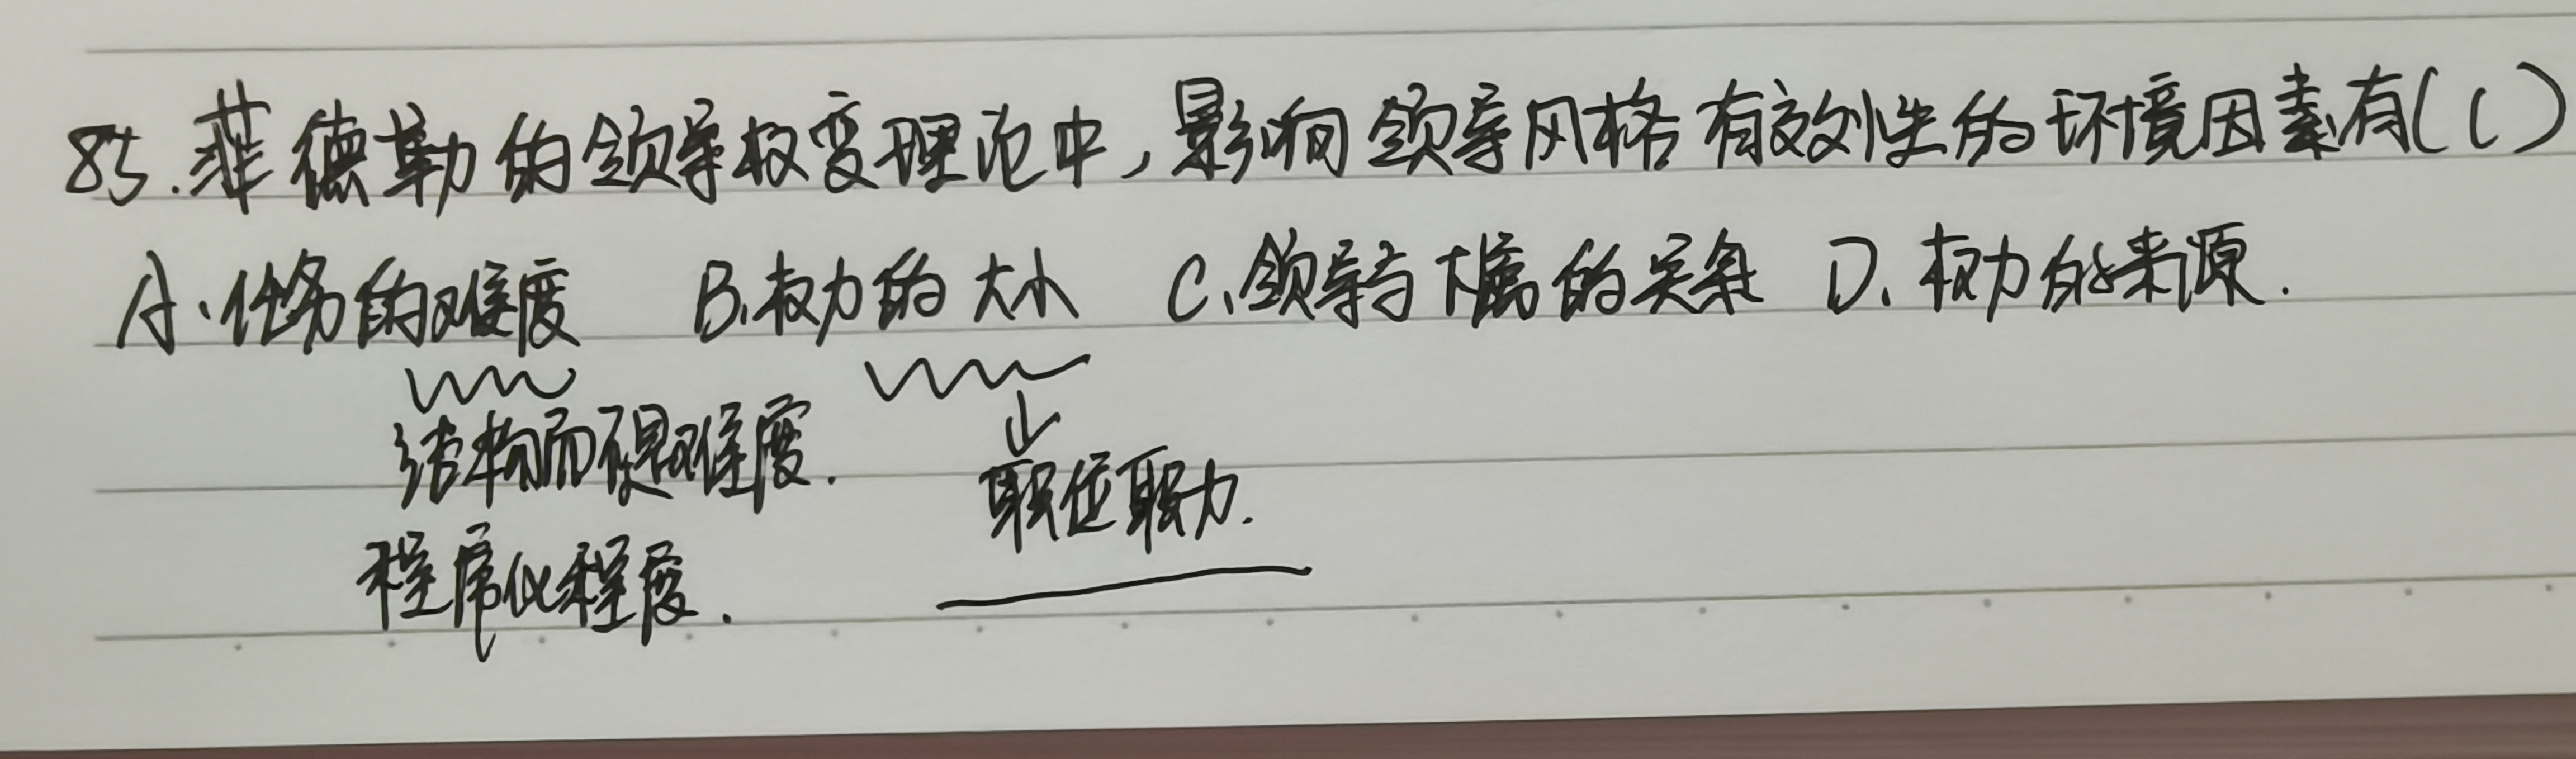 85.菲德勒的领导权变理论中,影响领导风格有效性的环境因素有(C)
A.任务的难度 B.权力的大小 C.领导与下属的关系 D.权力的来源.
结构而不是难度.
职位职力.
程序化程度.